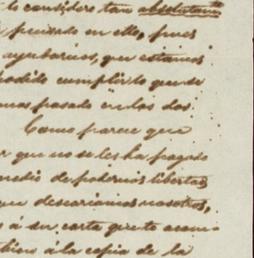 lo considere tan absolutamte
precisado en ello, pues
ayudarios, que estamos
podido cumplirlo que se
mos pasado en los dos
Como parece que
r que no se les ha pagado
medio de podernos libertar
que descariamos nosotros,
á su carta que te acom
bien á la copia de la